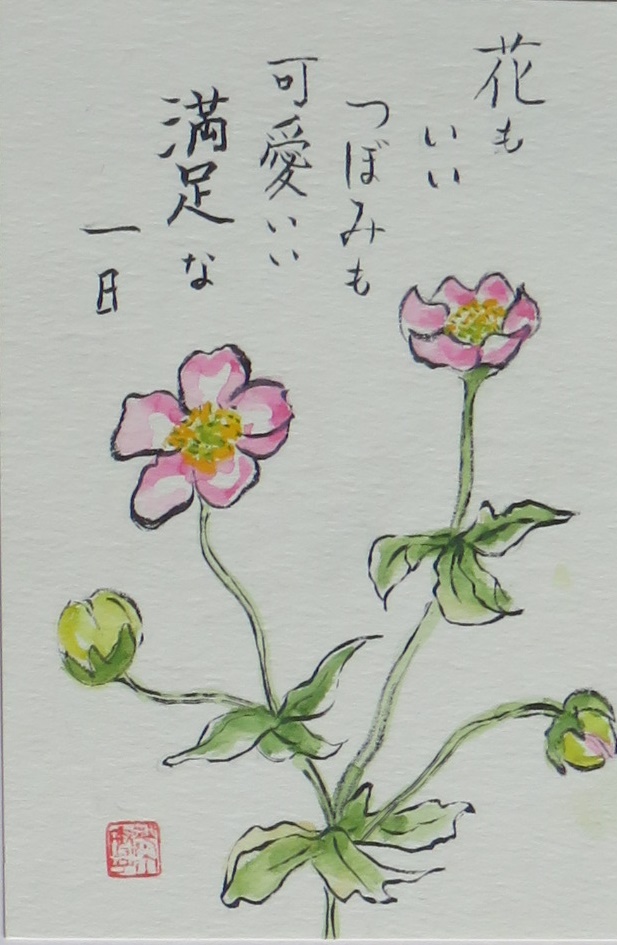 花も
いい
つぼみも
可愛いい
満足な
一日